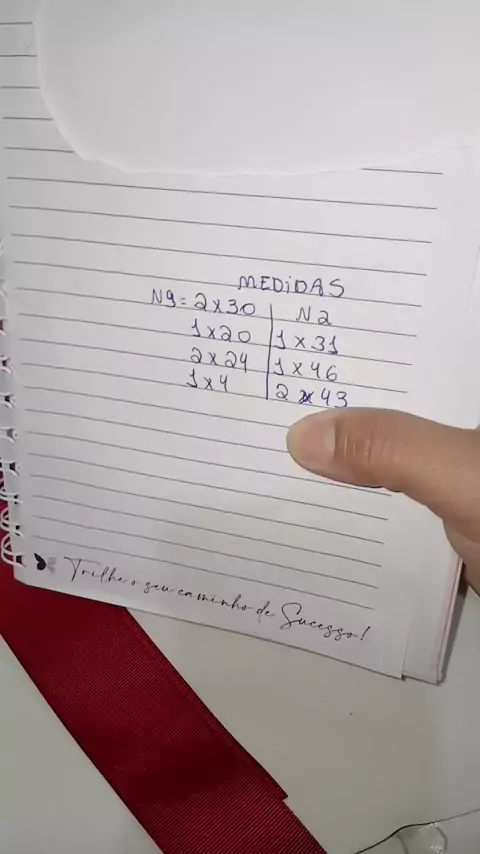 MEDIDAS
N9 = 2x30 | N2
1x20 | 1x31
2x24 | 1x46
1x4 | 2x43
Trilhe o seu caminho de Sucesso!